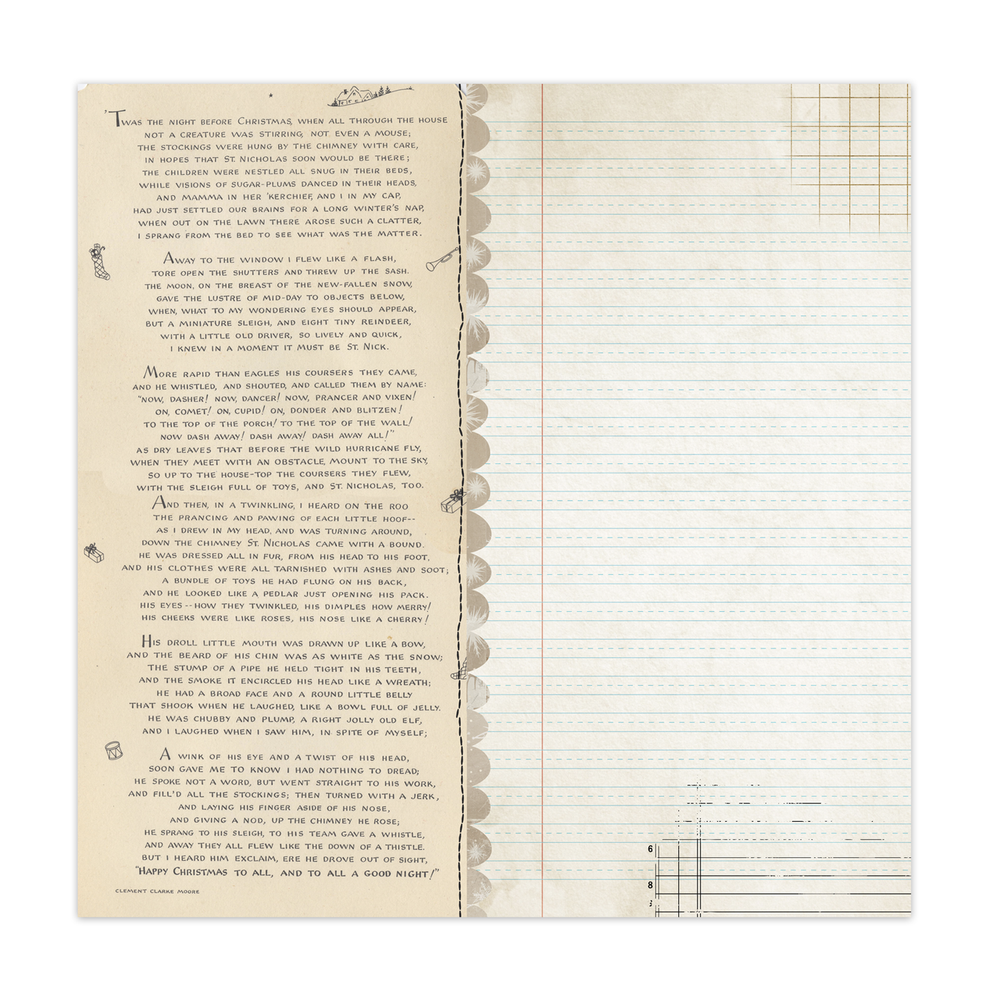 'Twas the night before Christmas, when all through the house
not a creature was stirring, not even a mouse;
the stockings were hung by the chimney with care,
in hopes that St. Nicholas soon would be there;
the children were nestled all snug in their beds,
while visions of sugar-plums danced in their heads,
and Mamma in her 'kerchief, and I in my cap,
had just settled our brains for a long winter's nap,
when out on the lawn there arose such a clatter,
I sprang from the bed to see what was the matter.
Away to the window I flew like a flash,
tore open the shutters and threw up the sash.
the moon, on the breast of the new-fallen snow,
gave the lustre of mid-day to objects below,
when, what to my wondering eyes should appear,
but a miniature sleigh, and eight tiny reindeer,
with a little old driver, so lively and quick,
I knew in a moment it must be St. Nick.
More rapid than eagles his coursers they came,
and he whistled, and shouted, and called them by name:
"now, Dasher! now, Dancer! now, Prancer and Vixen!
on, Comet! on, Cupid! on, Donder and Blitzen!
to the top of the porch! to the top of the wall!
now dash away! dash away! dash away all!"
as dry leaves that before the wild hurricane fly,
when they meet with an obstacle, mount to the sky,
so up to the house-top the coursers they flew,
with the sleigh full of toys, and St. Nicholas, too.
And then, in a twinkling, I heard on the roo
the prancing and pawing of each little hoof--
as I drew in my head, and was turning around,
down the chimney St. Nicholas came with a bound.
he was dressed all in fur, from his head to his foot,
and his clothes were all tarnished with ashes and soot;
a bundle of toys he had flung on his back,
and he looked like a pedlar just opening his pack.
his eyes--how they twinkled, his dimples how merry!
his cheeks were like roses, his nose like a cherry!
His droll little mouth was drawn up like a bow,
and the beard of his chin was as white as the snow;
the stump of a pipe he held tight in his teeth,
and the smoke it encircled his head like a wreath;
he had a broad face and a round little belly
that shook when he laughed, like a bowl full of jelly.
he was chubby and plump, a right jolly old elf,
and I laughed when I saw him, in spite of myself;
A wink of his eye and a twist of his head,
soon gave me to know I had nothing to dread;
he spoke not a word, but went straight to his work,
and fill'd all the stockings; then turned with a jerk,
and laying his finger aside of his nose,
and giving a nod, up the chimney he rose;
he sprang to his sleigh, to his team gave a whistle,
and away they all flew like the down of a thistle.
but I heard him exclaim, ere he drove out of sight,
"Happy Christmas to all, and to all a good night!"
Clement Clarke Moore
6
8